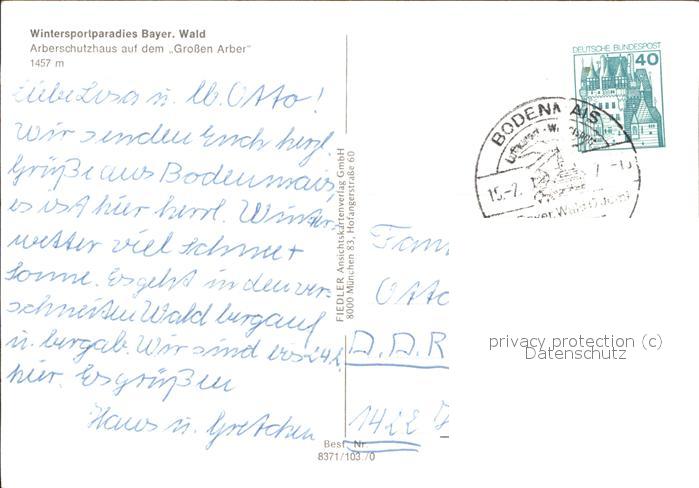 Wintersportparadies Bayer. Wald
Arberschutzhaus auf dem „Großen Arber"
1457 m
Liebe Losa u. lb. Otto!
Wir senden Euch herzl.
Grüße aus Bodenmais,
es ist hier herrl. Winter-
wetter viel Schnee +
Sonne. Es geht in den ver-
schneiten Wald bergauf
u. bergab. Wir sind bis 24.2.
hier. Es grüßen
Hans u. Gretchen
FIEDLER Ansichtskartenverlag GmbH
8000 München 83, Hofangerstraße 60
Best. Nr.
8371/103./0
DEUTSCHE BUNDESPOST
40
BODENMAIS
15.-2.
Bayer. Wald
Fam
Otto
D.D.R
1422
privacy protection (c)
Datenschutz